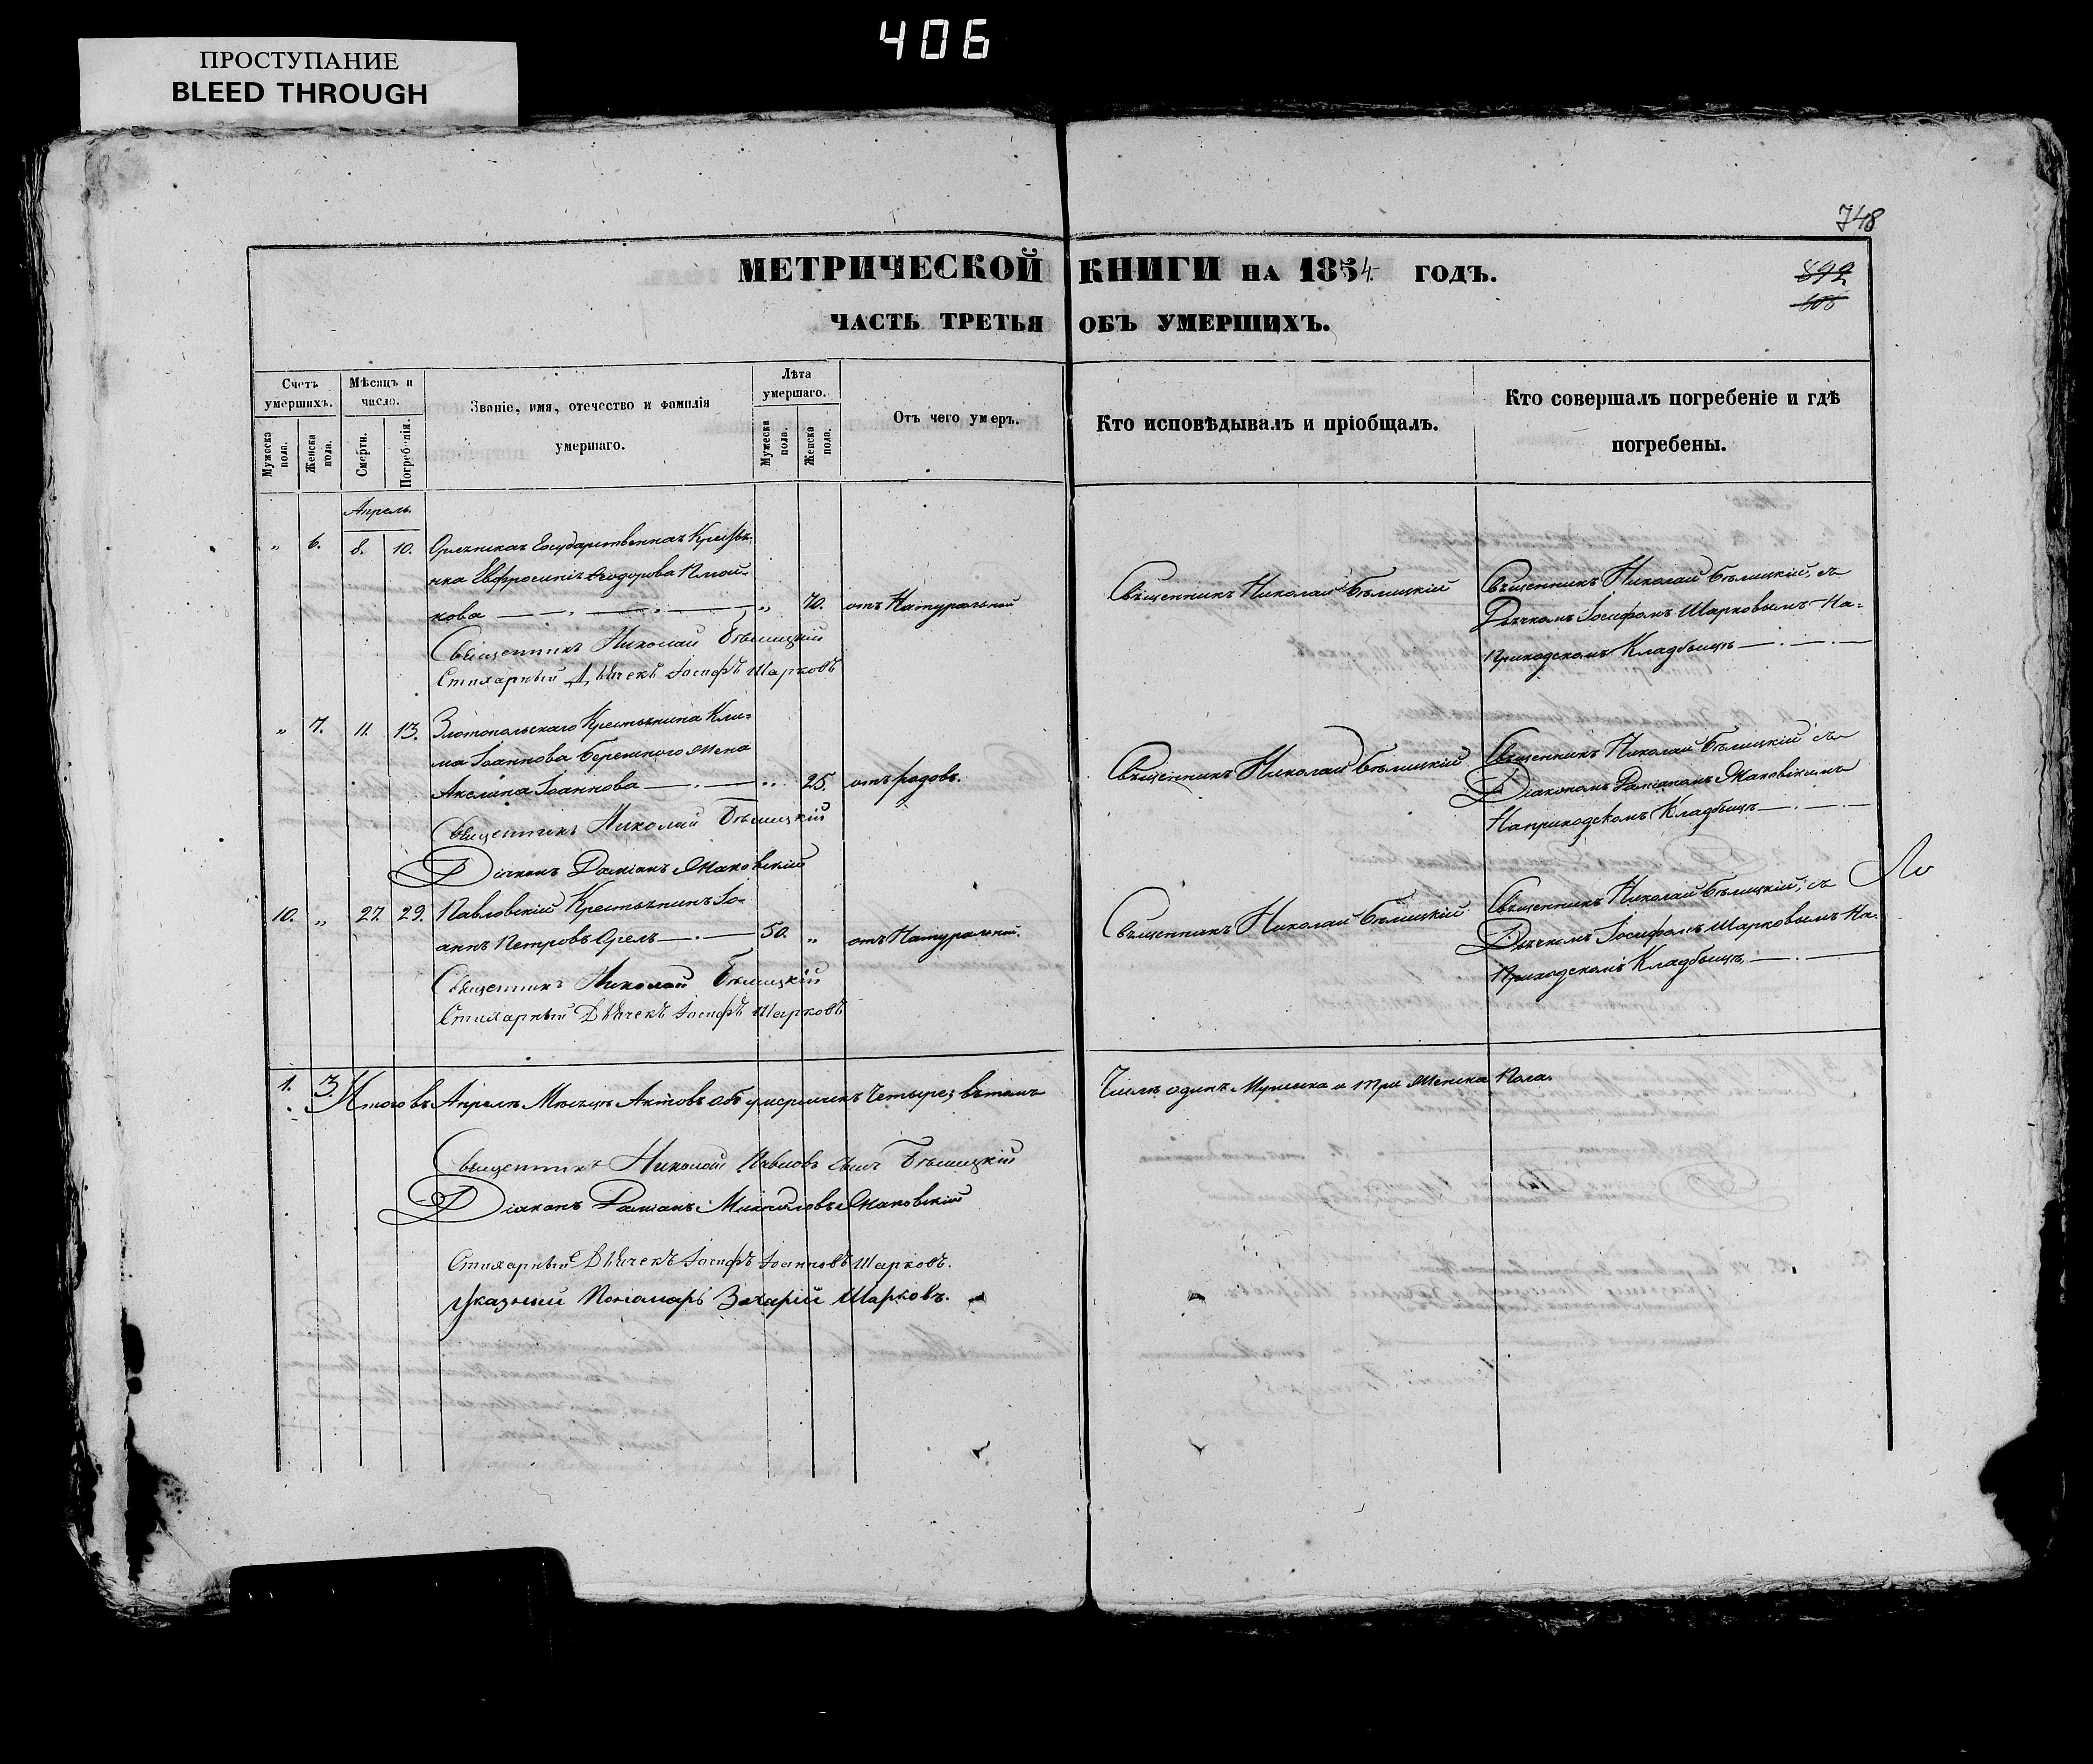 406
ПРОСТУПАНИЕ
BLEED THROUGH
748
МЕТРИЧЕСКОЙ КНИГИ НА 1854 ГОДЪ.
892
ЧАСТЬ ТРЕТЬЯ ОБЪ УМЕРШИХЪ.
Счетъ умершихъ.
Мѣсяцъ и число.
Званіе, имя, отечество и фамилія умершаго.
Лѣта умершаго.
Отъ чего умеръ.
Кто исповѣдывалъ и пріобщалъ.
Кто совершалъ погребеніе и гдѣ погребены.
Мужеска пола.
Женска пола.
Смерти.
Погребенія.
Мужеска пола.
Женска пола.
Апрель
" 6. 8. 10. Государственная Крестьян-
ка Евфросинія Ѳеодорова
кова " 70. отъ Натуральной
Священникъ Николай Бѣлицкій
Священникъ Николай Бѣлицкій, съ
Дьячкомъ Іосифомъ Шарковымъ На-
Приходскомъ Кладбищѣ
Священникъ Николай Бѣлицкій
Стихарный Дьячекъ Іосифъ Шарковъ
" 7. 11. 13. Злотопольскаго Крестьянина Кли-
ма Іоаннова Бережного жена
Акелина Іоаннова " 25. отъ родовъ.
Священникъ Николай Бѣлицкій
Священникъ Николай Бѣлицкій съ
Діакономъ Даміаномъ Маковскимъ
На приходскомъ Кладбищѣ
Священникъ Николай Бѣлицкій
Діаконъ Даміанъ Маковскій
10. " 27. 29. Павловскій Крестьянинъ Іо-
аннъ Петровъ Орелъ 50. " отъ Натуральной.
Священникъ Николай Бѣлицкій
Священникъ Николай Бѣлицкій, съ
Дьячкомъ Іосифомъ Шарковымъ На-
Приходскомъ Кладбищѣ
Священникъ Николай Бѣлицкій
Стихарный Дьячекъ Іосифъ Шарковъ
1. 3. Итого въ Апрелѣ Мѣсяцѣ Актовъ объ умершихъ Четыре, въ томъ Числѣ одинъ Мужеска и три Женска Пола.
Священникъ Николай Павловъ сынъ Бѣлицкій
Діаконъ Даміанъ Михайловъ Маковскій
Стихарный Дьячекъ Іосифъ Іоанновъ Шарковъ.
Указный Пономарь Захарій Шарковъ.